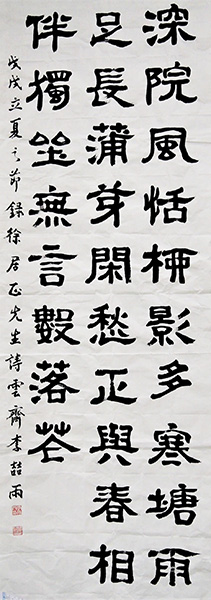 深院風恬柳影多寒塘雨
足長蒲芽閑愁正與春相
伴獨坐無言數落花
戊戌立夏之節錄徐居正先生詩雲齋李喆雨